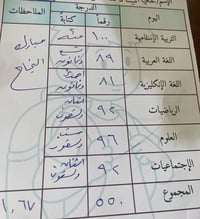 الدرجة الملاحظات
اليوم رقماً كتابة
التربية الإسلامية ١٠٠ مئة مبارك
اللغة العربية ٨٩ تسع وثمانون النجاح
اللغة الإنكليزية ٨١ احدى وثمانون
الرياضيات ٩٢ اثنان وتسعون
العلوم ٩٦ ست وتسعون
الإجتماعيات ٩٢ اثنان وتسعون
المجموع ٥٥٠ ١,٦٧